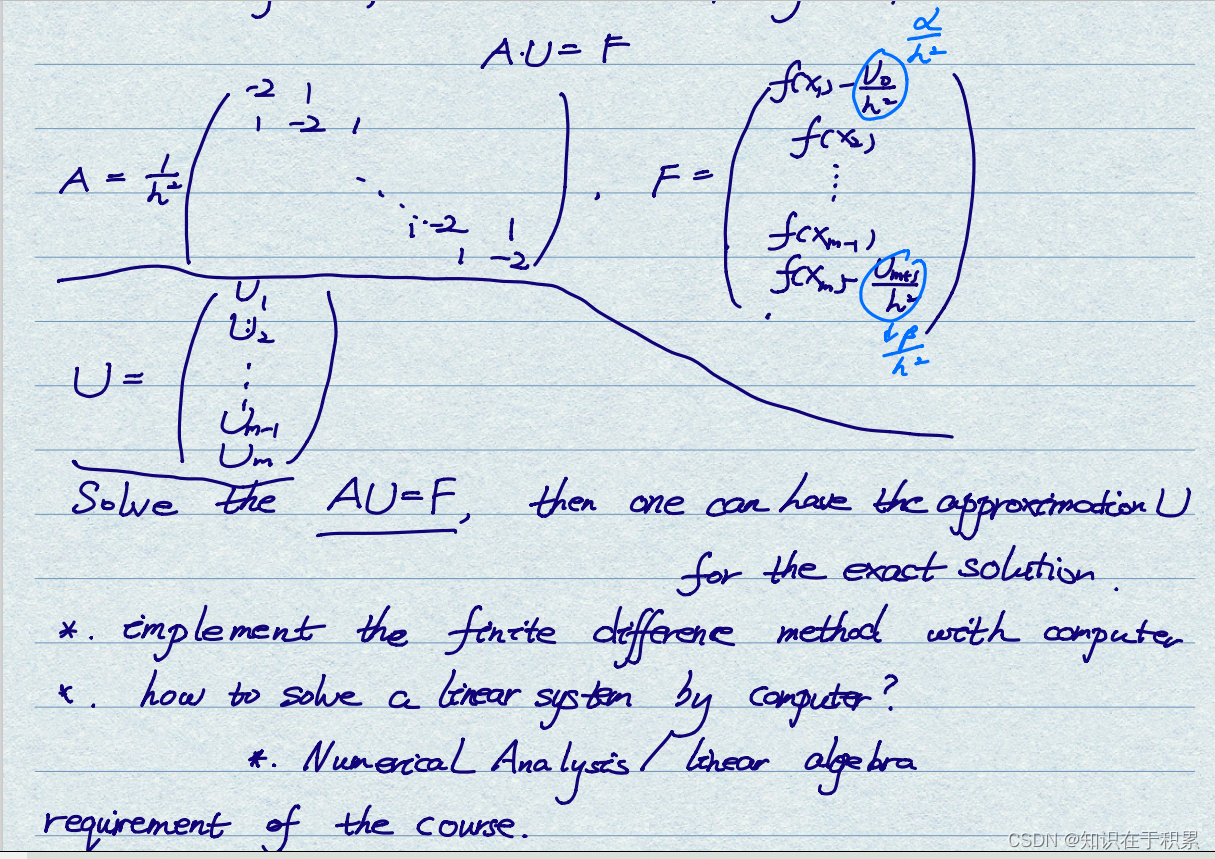 A·U = F
A = 1/h² ( -2 1
1 -2 1
⋱
1 -2 1
1 -2 ) , F = ( f(x₁) - U₀/h²
f(x₂)
⋮
f(xₘ₋₁)
f(xₘ) - Uₘ₊₁/h² )
α/h²
β/h²
U = ( U₁
U₂
⋮
Uₘ₋₁
Uₘ )
Solve the AU=F, then one can have the approximation U
for the exact solution.
*. implement the finite difference method with computer
*. how to solve a linear system by computer?
*. Numerical Analysis / linear algebra
requirement of the course.
CSDN @知识在手积累